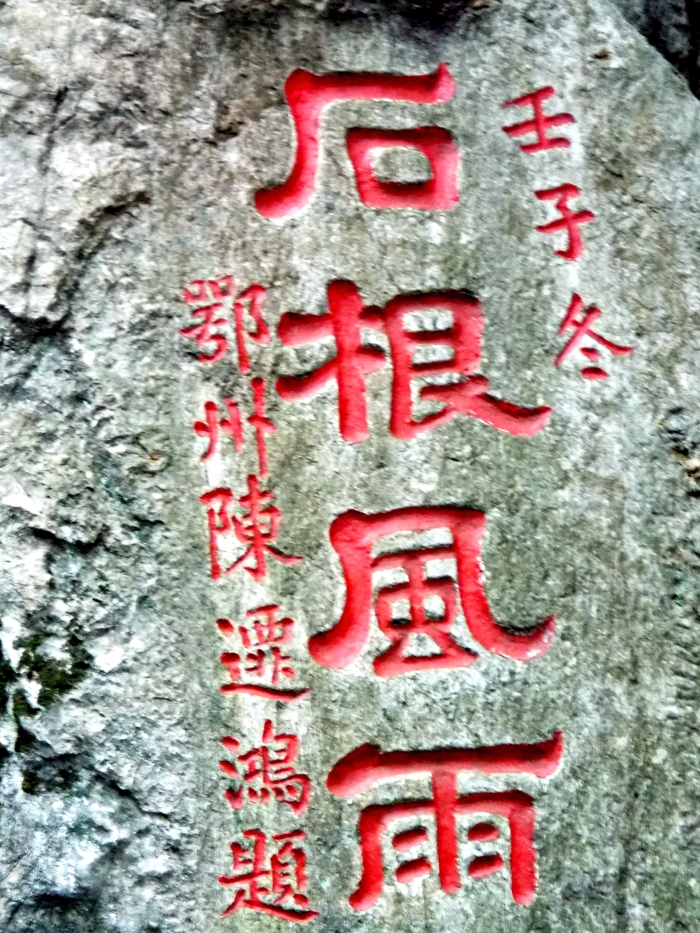 壬子冬
石根風雨
鄂州陳遷鴻題